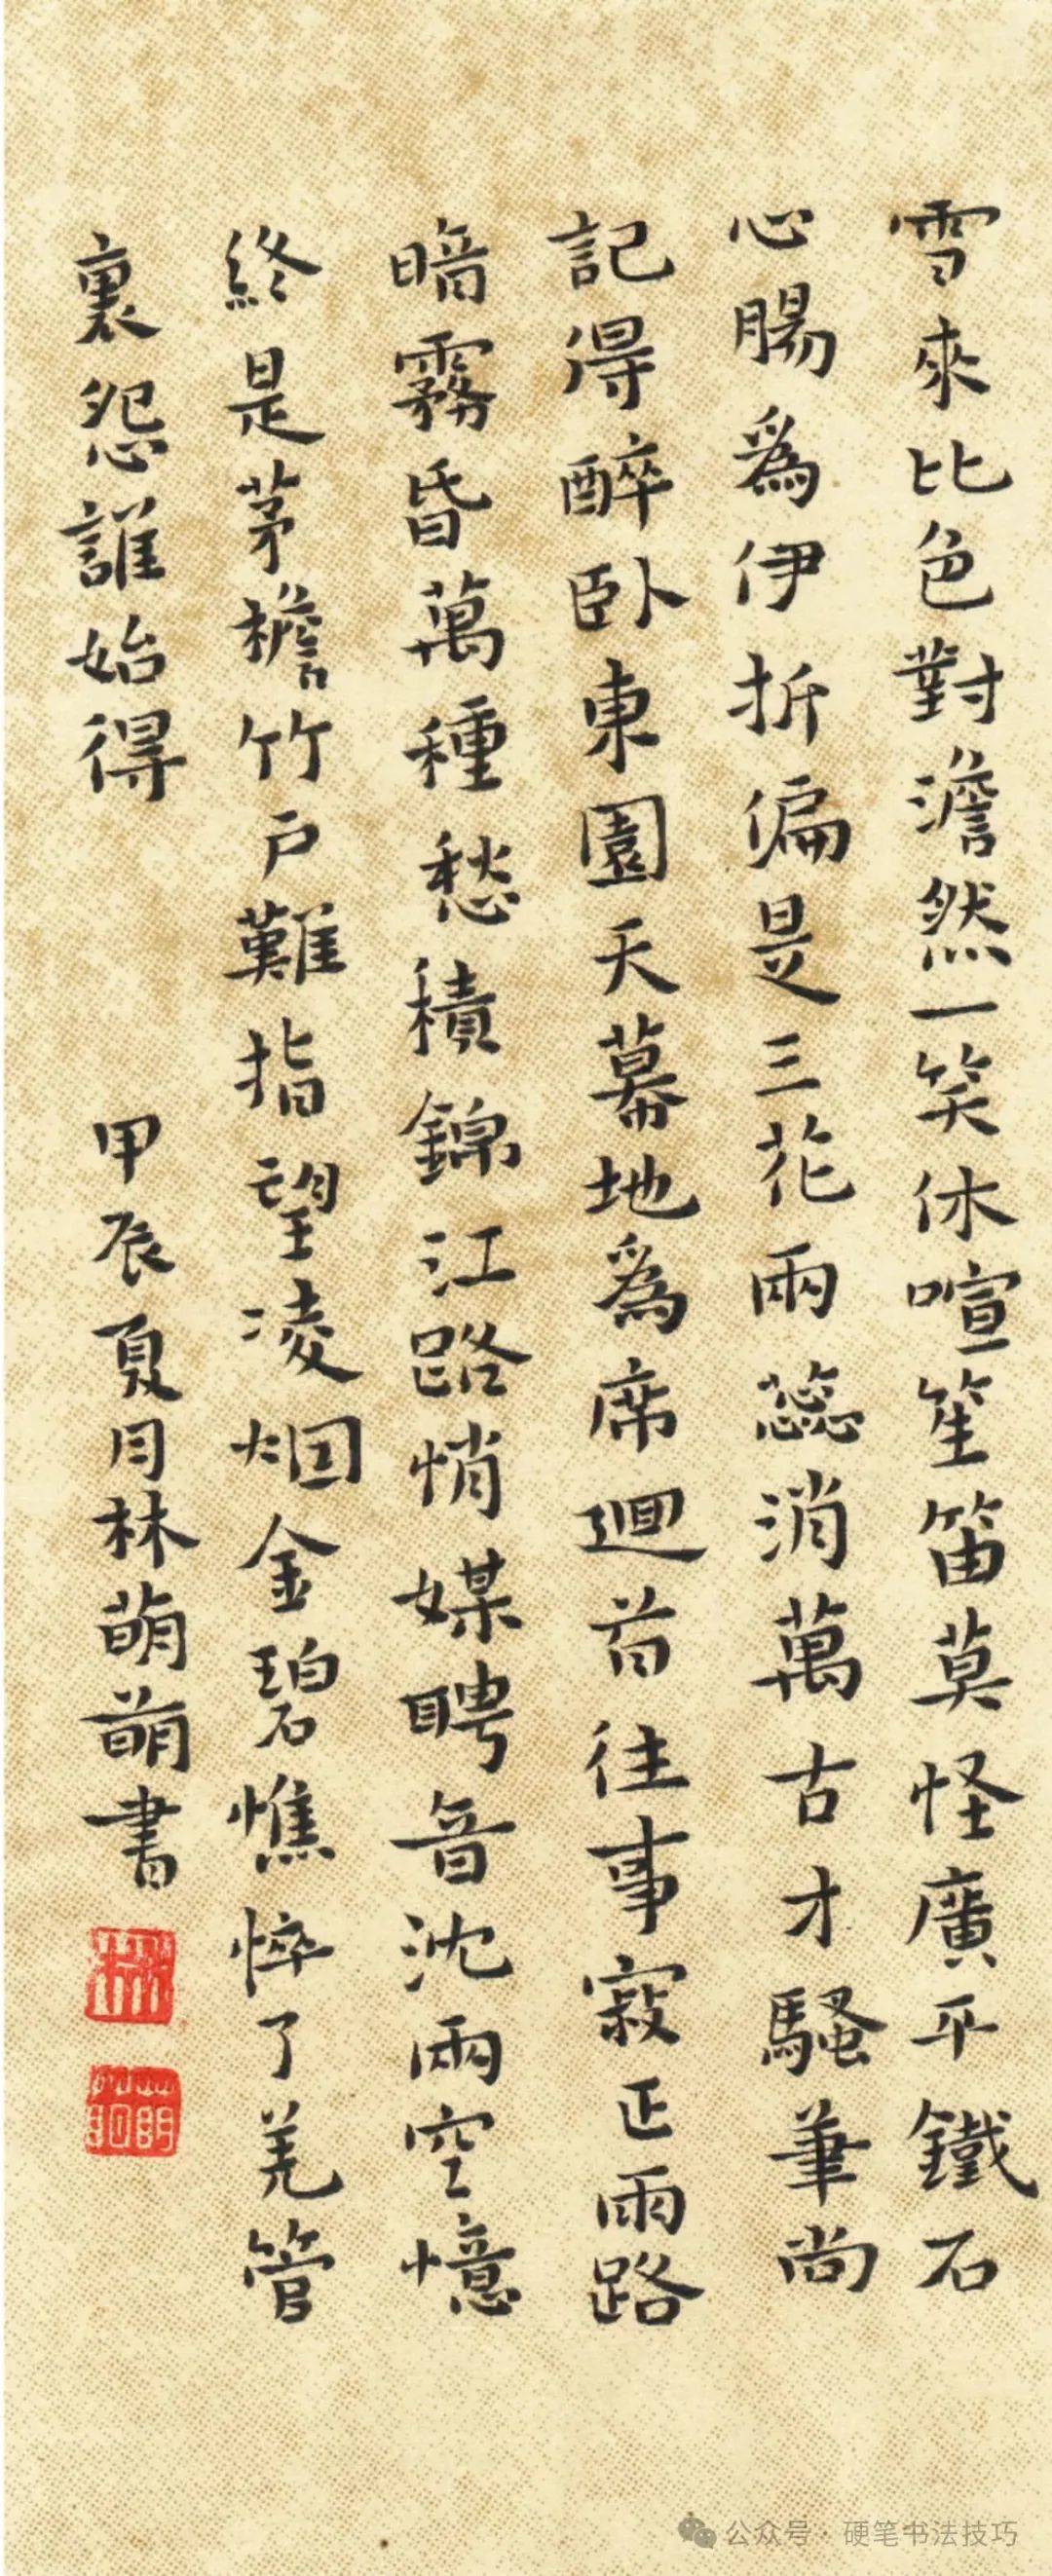 雪來比色對澹然一笑休喧笙笛莫怪廣平鐵石
心腸為伊折偏是三花兩蕊消萬古才騷筆尚
記得醉臥東園天幕地為席迴首往事寂正雨路
暗霧昏萬種愁積錦江路悄媒聘音沈兩空憶
終是茅檐竹戶難指望凌烟金碧憔悴了羌管
裏怨誰始得
甲辰夏月林萌萌書
林
公众号·硬笔书法技巧